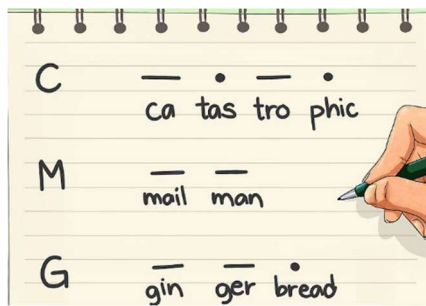 C — • — •
ca tas tro phic
M — —
mail man
G — — •
gin ger bread